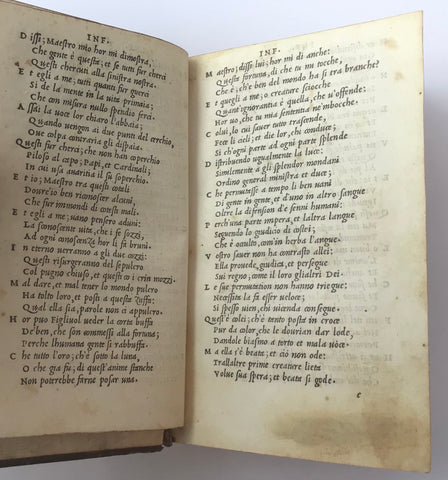 INF.
Dissi; Maestro mio hor mi dimostra,
Che gente è questa; et se tutti fur cherci
Questi chercuti alla sinistra nostra.
Et egli a me; tutti quanti fur guerci
Si de la mente in la vita primaia;
Che con misura nullo spendio ferci.
Assai la voce lor chiaro l'abbaia;
Quando vengon ai due punti del cerchio,
Oue colpa contraria gli dispaia.
Questi fur cherci; che non han coperchio
Piloso al capo; Papi, et Cardinali;
In cui usa auaritia il su soperchio.
Et io; Maestro tra questi cotali
Doure'io ben riconoscer alcuni;
Che fur immondi di cotesti mali.
Et egli a me; uano pensero aduni:
La sconoscente uita, che i fe sozzi,
Ad ogni conoscenza hor li fa bruni.
In eterno uerranno a gli due cozzi:
Questi risurgeranno del sepulcro
Col pugno chiuso, et questi co i crin mozzi.
Mal dare, et mal tener lo mondo pulcro
Ha tolto loro, et posti a questa zuffa:
Qual ella sia, parole non ci appulcro.
Hor puo Figliuol ueder la corta buffa
De'ben, che son commessi alla fortuna;
Perche lhumana gente si rabbuffa.
Che tutto l'oro; ch'è sotto la luna,
O che gia fu; di quest'anime stanche
Non poterebbe farne posar una.
INF.
Maestro; dissi lui; hor mi di anche:
Questa fortuna, di che tu mi tocche,
Che è; ch'e ben del mondo ha si tra branche?
Et quegli a me; o creature sciocche
Quant'ignorantia è quella, che u'offende:
Hor uo, che tu mia sententia ne'mbocche.
Colui, lo cui sauer tutto trascende,
Fece li cieli; et die lor, chi conduce;
Si ch'ogni parte ad ogni parte splende
Distribuendo ugualmente la luce:
Similemente a gli splendor mondani
Ordino general ministra et duce;
Che permutasse a tempo li ben uani
Di gente in gente, et d'uno in altro sangue
Oltre la difension d'e senni humani:
Perch'una parte impera, et l'altra langue
Seguendo lo giudicio di costei;
Che è occulto, com'in herba l'angue.
Vostro sauer non ha contrasto allei:
Ella prouede, giudica, et persegue
Sui regno, come il loro gli altri Dei.
Le sue permutation non hanno triegue:
Necessita la fa esser ueloce;
Si spesso uien, chi uicenda consegue.
Quest'è colei; ch'è tanto posta in croce
Pur da color, che le dourian dar lode,
Dandole biasmo a torto et mala uoce.
Ma ella s'è beata; et ciò non ode:
Trall'altre prime creature lieta
Volue sua spera; et beata si gode.
e